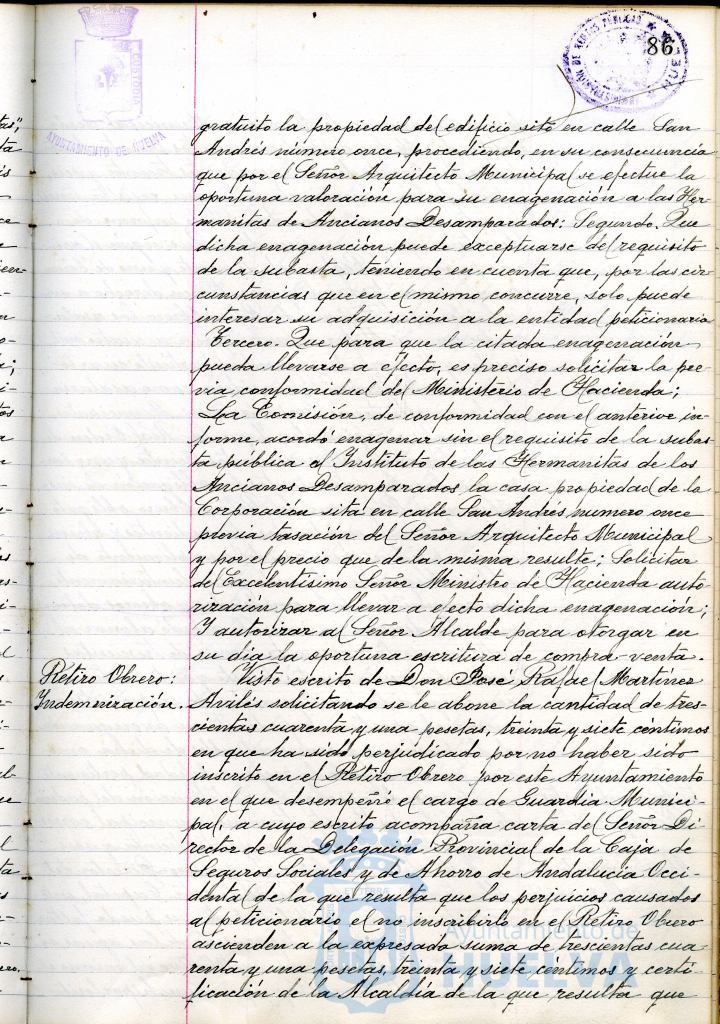 86
AYUNTAMIENTO DE HUELVA
gratuito la propiedad del edificio sito en calle San
Andrés número once, procediendo, en su consecuencia
que por el Señor Arquitecto Municipal se efectue la
oportuna valoración para su enagenación a las Her-
manitas de Ancianos Desamparados; Segundo. Que
dicha enagenación puede exceptuarse del requisito
de la subasta, teniendo en cuenta que, por las cir-
cunstancias que en el mismo concurre, solo puede
interesar su adquisición a la entidad peticionaria
Tercero. Que para que la citada enagenación
pueda llevarse a efecto, es preciso solicitar la pre-
via conformidad del Ministerio de Hacienda;
La Comisión, de conformidad con el anterior in-
forme, acordó enagenar sin el requisito de la subas-
ta pública al Instituto de las Hermanitas de los
Ancianos Desamparados la casa propiedad de la
Corporación sita en calle San Andrés, numero once
previa tasación del Señor Arquitecto Municipal
y por el precio que de la misma resulte; Solicitar
del Excelentisimo Señor Ministro de Hacienda auto-
rización para llevar a efecto dicha enagenación;
Y autorizar al Señor Alcalde para otorgar en
su dia la oportuna escritura de compra-venta.
Retiro Obrero:
Indemnización.
Visto escrito de Don José Rafael Martinez
Avilés solicitando se le abone la cantidad de tres-
cientas cuarenta y una pesetas, treinta y siete céntimos
en que ha sido perjudicado por no haber sido
inscrito en el Retiro Obrero por este Ayuntamiento
en el que desempeñó el cargo de Guardia Munici-
pal, a cuyo escrito acompaña carta del Señor Di-
rector de la Delegación Provincial de la Caja de
Seguros Sociales y de Ahorro de Andalucia Occi-
dental de la que resulta que los perjuicios causados
al peticionario el no inscribirlo en el Retiro Obrero
ascienden a la expresada suma de trescientas cua-
renta y una pesetas, treinta y siete céntimos y certi-
ficación de la Alcaldía de la que resulta que
Ayuntamiento de
HUELVA